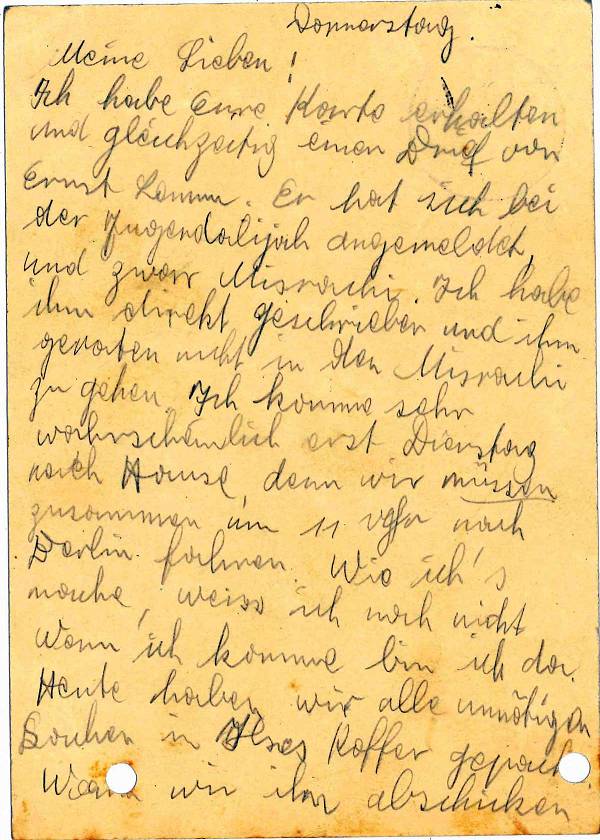 Donnerstag.
Meine Lieben!
Ich habe Eure Karte erhalten
und gleichzeitig einen Brief von
Ernst Lamm. Er hat sich bei
der Jugendalijah angemeldet,
und zwar Misrachi. Ich habe
ihm direkt geschrieben und ihm
geraten nicht in den Misrachi
zu gehen. Ich komme sehr
wahrscheinlich erst Dienstag
nach Hause, denn wir müssen
zusammen um 11 Uhr nach
Berlin fahren. Wie ich's
mache, weiss ich noch nicht
Wenn ich komme bin ich da.
Heute haben wir alle unnötigen
Sachen in Ilses Koffer gepackt.
Wann wir ihn abschicken